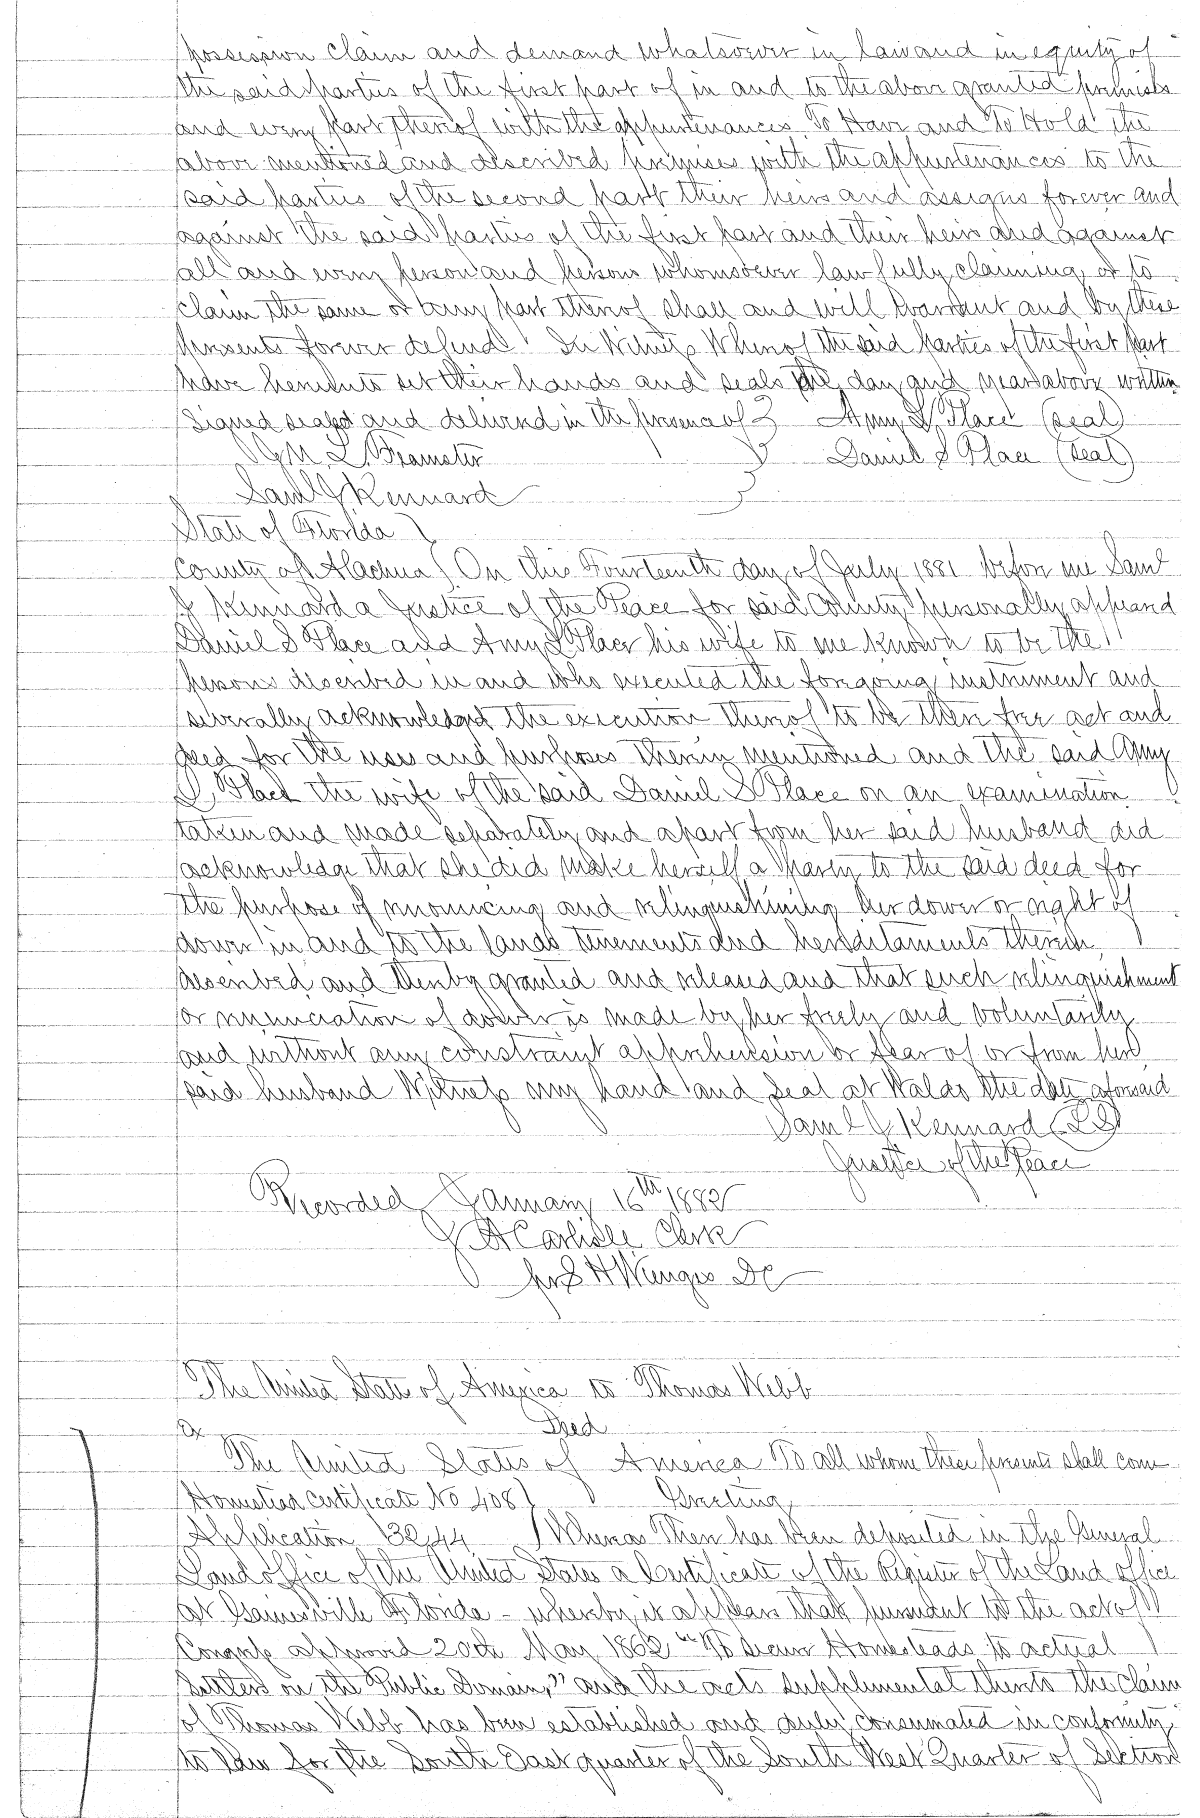 possession claim and demand whatsoever in law and in equity of
the said parties of the first part of in and to the above granted premises
and every part thereof with the appurtenances To Have and To Hold the
above mentioned and described premises with the appurtenances to the
said parties of the second part their heirs and assigns forever and
against the said parties of the first part and their heirs and against
all and every person and persons whomsoever lawfully claiming or to
claim the same or any part thereof shall and will warrant and by these
presents forever defend In Witness Whereof the said parties of the first part
have hereunto set their hands and seals the day and year above written
Signed sealed and delivered in the presence of } Amy L Place (seal)
L. Feamster } Daniel S Place (seal)
Saml J Kennard }
State of Florida }
County of Alachua } On this Fourteenth day of July 1881 before me Saml
J Kennard a Justice of the Peace for said County personally appeared
Daniel S Place and Amy L Place his wife to me known to be the
persons described in and who executed the foregoing instrument and
severally acknowledged the execution thereof to be there free act and
deed for the uses and purposes therein mentioned and the said Amy
L Place the wife of the said Daniel S Place on an examination
taken and made separately and apart from her said husband did
acknowledge that she did make herself a party to the said deed for
the purpose of renouncing and relinquishining her dower or right of
dower in and to the lands tenements and hereditaments therein
described and thereby granted and released and that such relinquishment
or renunciation of dower is made by her freely and voluntarily
and without any constraint apprehension or fear of or from her
said husband Witness my hand and seal at Waldo the date aforesaid
Saml J Kennard (LS)
Justice of the Peace
Recorded January 16th 1882
J A Carlisle Clerk
per S H Wienges DC
The United State of America to Thomas Webb
Deed
The United States of America To all whome these presents shall come
Homestead Certificate No 408 } Greeting
Application 3244 } Whereas There has been deposited in the General
Land office of the United States a Certificate of the Register of the Land office
at Gainesville Florida - whereby it appears that pursuant to the act of
Congress approved 20th May 1862 "To secure Homesteads to actual
Settlers on the Public Domain," and the acts supplemental thereto the claim
of Thomas Webb has been established and duly consumated in conformity
to law for the South East quarter of the South West Quarter of Section